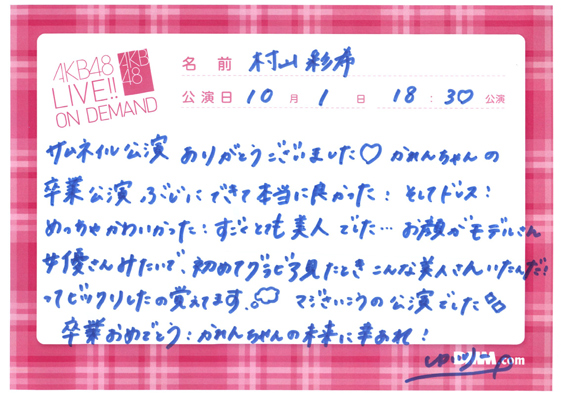 AKB48
LIVE!!
ON DEMAND
AKB48
名前 村山彩希
公演日 10月1日 18:30公演
サムネイル公演 ありがとうございました♡ かれんちゃんの
卒業公演 ぶじにできて本当に良かった! そしてドレス!
めっちゃかわいかった! すごくとても美人でした… お顔がモデルさん
女優さんみたいで、初めてグラビア見たときこんな美人さんいたんだ!
ってビックリしたの覚えてます。 マジさいこうの公演でした
卒業おめでとう! かれんちゃんの未来に幸あれ!
ゆいりーp
DMM.com